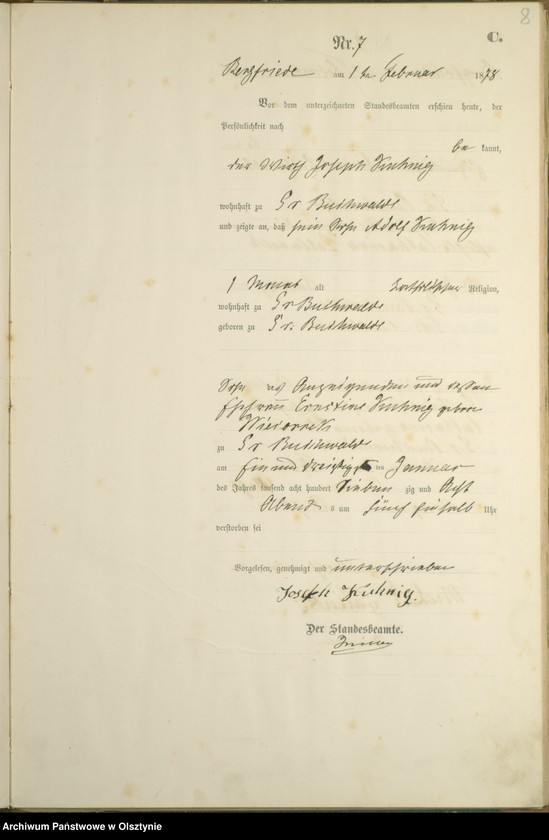 8
C.
Nr. 7
Bergfriede am 1 ten Februar 1878
Vor dem unterzeichneten Standesbeamten erschien heute, der
Persönlichkeit nach
be kannt,
der Wirth Joseph Kuhnig
wohnhaft zu Gr Buchwalde
und zeigte an, daß sein Sohn Adolf Kuhnig
1 Monat alt katholischer Religion,
wohnhaft zu Gr Buchwalde
geboren zu Gr. Buchwalde
Sohn des Anzeigenden und dessen
Ehefrau Ernestine Kuhnig geborne
zu Gr Buchwalde
am ein und dreißigsten Januar
des Jahres tausend acht hundert sieben zig und Acht
Abend s um fünf einhalb Uhr
verstorben sei
Vorgelesen, genehmigt und unterschrieben
Joseph Kuhnig.
Der Standesbeamte.
Archiwum Państwowe w Olsztynie